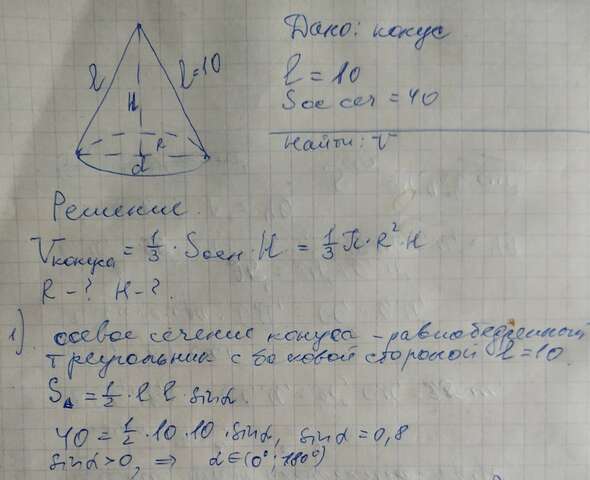 Дано: конус
l l=10
H
R
d
l = 10
Sос сеч = 40
Найти: V
Решение.
Vконуса = 1/3 · Sосн · H = 1/3 π · R² · H
R - ? H - ?.
1) осевое сечение конуса - равнобедренный
треугольник с боковой стороной l = 10.
S△ = 1/2 · l · l · sinα.
40 = 1/2 · 10 · 10 · sinα, sinα = 0,8
sinα > 0, ⇒ α ∈ (0°; 180°)